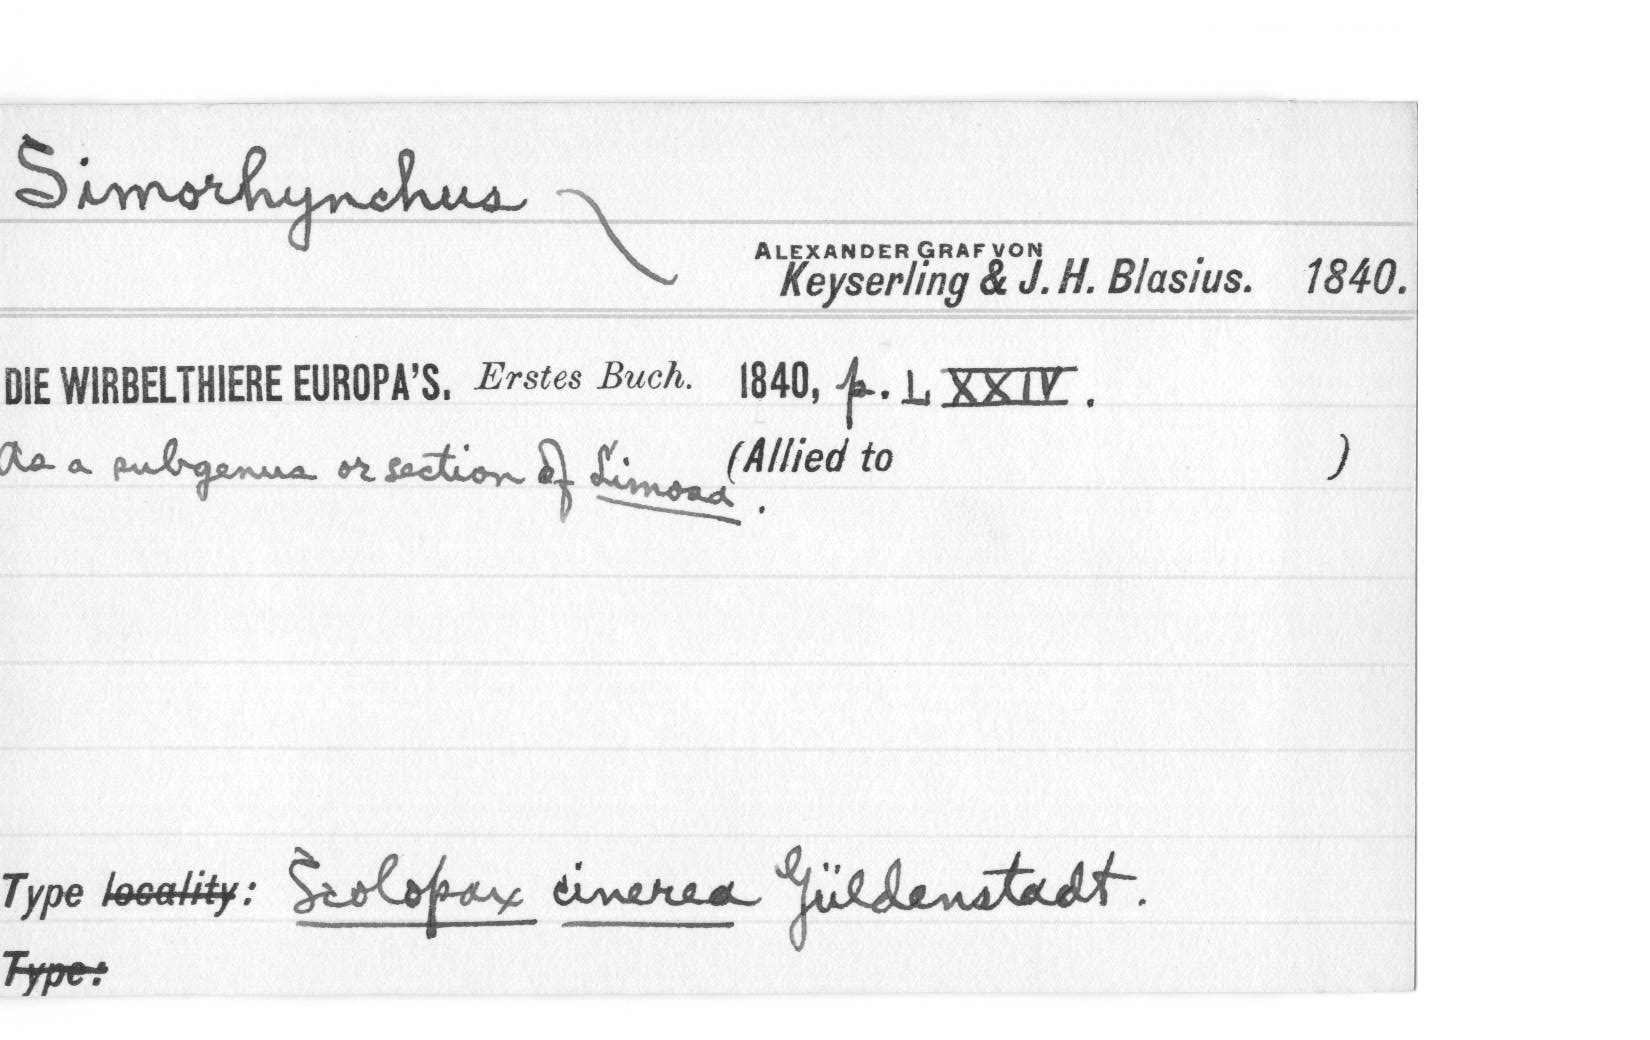 Simorhynchus
ALEXANDER GRAF VON
Keyserling & J. H. Blasius. 1840.
DIE WIRBELTHIERE EUROPA'S. Erstes Buch. 1840, p. LXXIV.
As a subgenus or section of Limosa. (Allied to )
Type locality: Scolopax cinerea Güldenstadt.
Type: